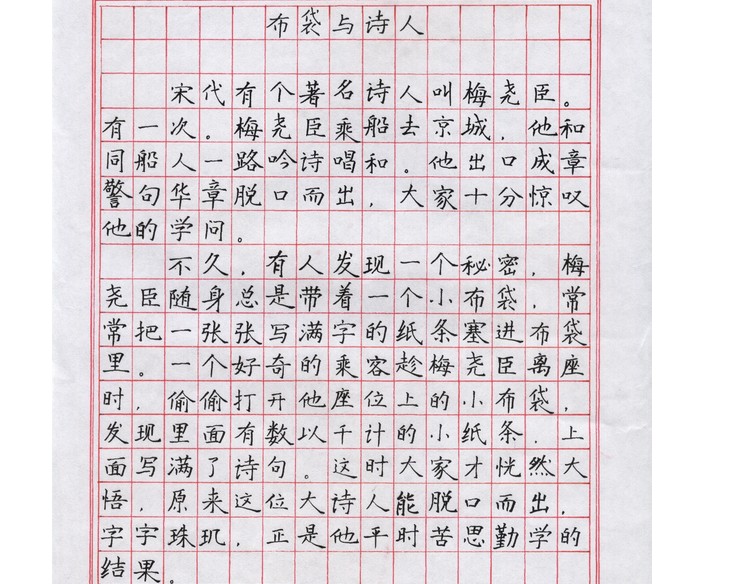 布袋与诗人
宋代有个著名诗人叫梅尧臣。
有一次。梅尧臣乘船去京城，他和
同船人一路吟诗唱和。他出口成章
警句华章脱口而出，大家十分惊叹
他的学问。
不久，有人发现一个秘密，梅
尧臣随身总是带着一个小布袋，常
常把一张张写满字的纸条塞进布袋
里。一个好奇的乘客趁梅尧臣离座
时，偷偷打开他座位上的小布袋，
发现里面有数以千计的小纸条．上
面写满了诗句。这时大家才恍然大
悟，原来这位大诗人能脱口而出，
字字珠玑，正是他平时苦思勤学的
结果。